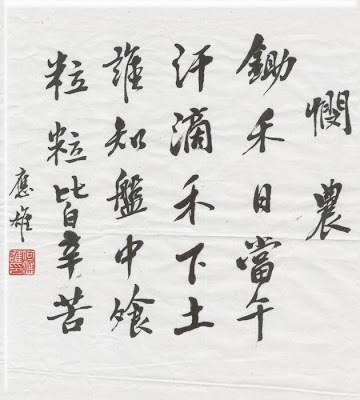 憫農
鋤禾日當午
汗滴禾下土
誰知盤中飧
粒粒皆辛苦
應雄